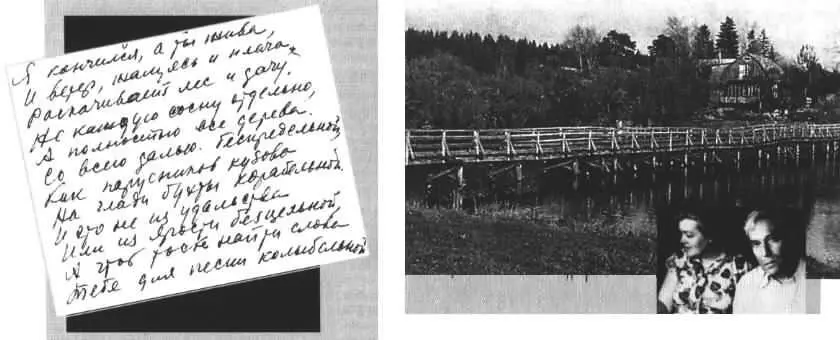 Я кончился, а ты жива,
И ветер, жалуясь и плача,
Раскачивает лес и дачу.
Не каждую сосну отдельно,
А полностью все дерева
Со всею далью беспредельной,
Как парусников кузова
На глади бухты корабельной.
И это не из удальства
Или из ярости бесцельной,
А чтоб в тоске найти слова
Тебе для песни колыбельной